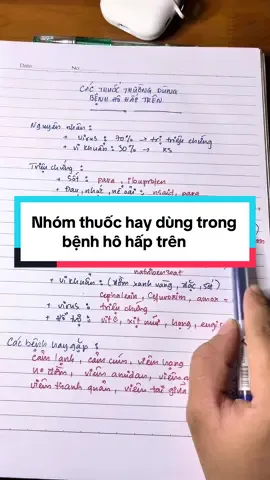 Date
No
CÁC THUỐC THƯỜNG DÙNG
BỆNH HÔ HẤP TRÊN
Nguyên nhân :
+ virus : 70% → trị triệu chứng
+ vi khuẩn : 30% → KS
Triệu chứng :
+ Sốt : para, ibuprofen
+ Đau, nhức, : nsaid, para
Nhóm thuốc hay dùng trong
bệnh hô hấp trên
+ vi khuẩn : (đờm xanh vàng, đặc, sốt)
cephalexin, Cefuroxim, amox
+ virus : triệu chứng
+ : vit C, xịt mũi, họng,
Các bệnh hay gặp :
cảm lạnh, cảm cúm, viêm họng
ho đờm, viêm amidan, viêm
viêm thanh quản, viêm tai giữa